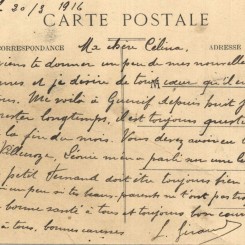 20/3 1916
CARTE POSTALE
CORRESPONDANCE Ma chère Célina. ADRESSE
viens te donner un peu de mes nouvelles
et je désire de tout cœur qu'il en
Me voilà à depuis huit j
rester longtemps, il est toujours questi
la fin du mois. Vous devez avoir le
Léonie m'en a parlé sur une le
petit Fernand doit être toujours bien
un peu si tes beaux-parents m'ont
bonne santé à tous et toujours bon cour
à tous, bonnes caresses